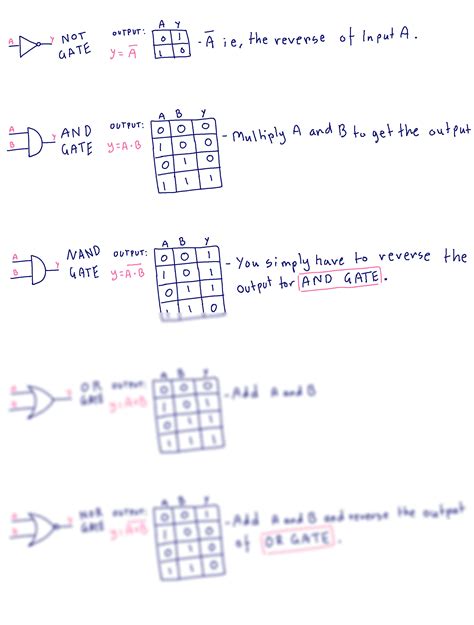 A Y NOT GATE OUTPUT: y = A̅
A Y
0 1
1 0
- A̅ ie, the reverse of Input A.
A B Y AND GATE OUTPUT: y = A·B
A B Y
0 0 0
1 0 0
0 1 0
1 1 1
- Multiply A and B to get the output
A B Y NAND GATE OUTPUT: y = A̅·̅B̅
A B Y
0 0 1
1 0 1
0 1 1
1 1 0
- You simply have to reverse the
output for AND GATE.
OR GATE OUTPUT:
A B Y
0 0 0
1 0 1
0 1 1
1 1 1
- Add A and B
NOR GATE OUTPUT:
A B Y
0 0 1
1 0 0
0 1 0
1 1 0
- Add A and B and reverse the output
of OR GATE.